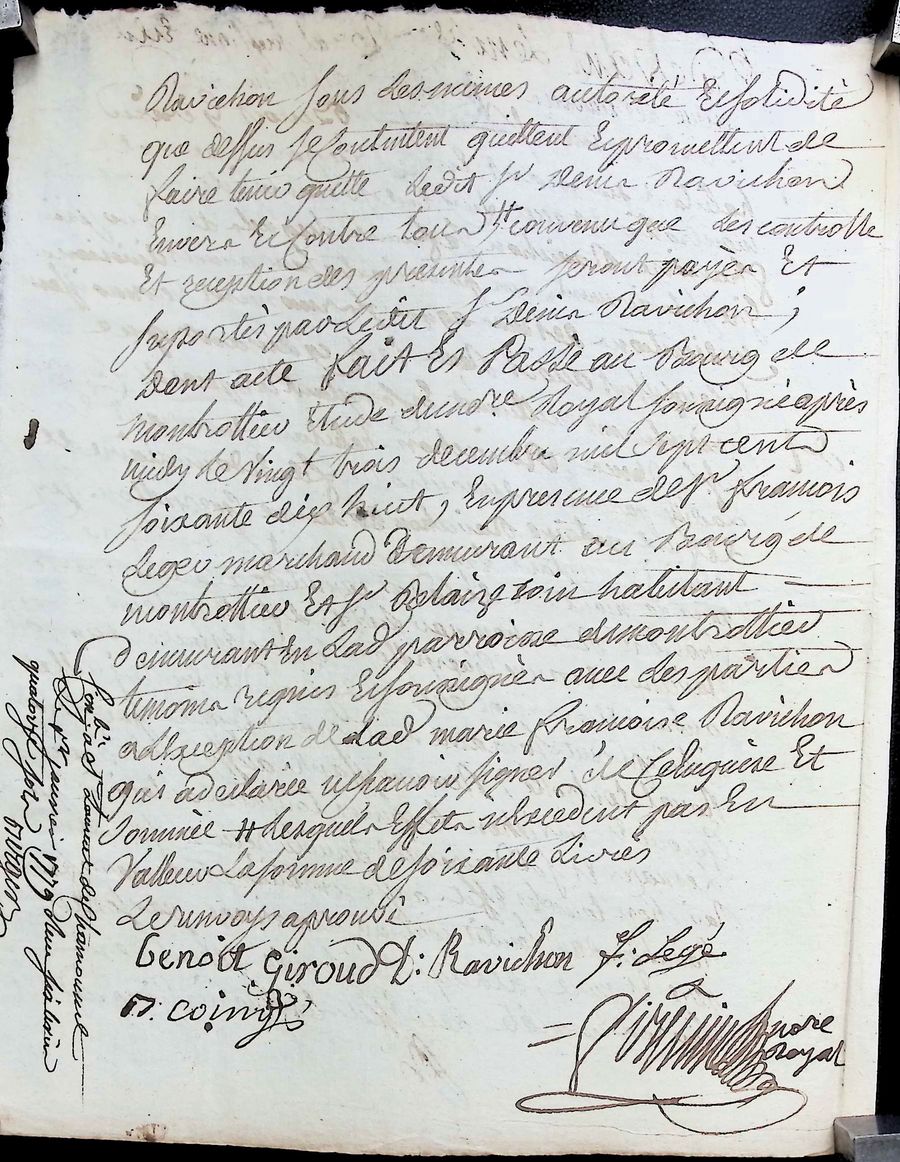 Ravichon sous les mêmes autorité Et solidité
que dessus se contentent quittent Et promettent de
faire tenir quitte ledit Sr Denis Ravichon
Envers Et Contre tous, # convenu que les controlle
Et reception des presentes seront payés Et
suportés par Ledit Sr Denis Ravichon ;
Dont acte fait Et Passé au Bourg de
montrottier Etude du nore Royal soussigné après
midy le vingt trois decembre mil sept cents
soixante dix huit, En presence de Sr François
Leger marchand Demeurant au Bourg de
montrottier Et Sr Blaize Coin habitant
demeurant En Lad parroisse de montrottier
temoins requis Et soussignés avec les parties
a L'exception de Lad marie françoise Ravichon
qui a declarée ne sçavoir signer de ce Enquise Et
sommée # Lesquels Effets n'Excedent pas En
Valleur La somme de soixante Livres
Le renvoys aprouvé
benoit Giroud D: Ravichon F: Legé
B. coing
nore
Royal
Le 1er janvier 1779
quatorze sols